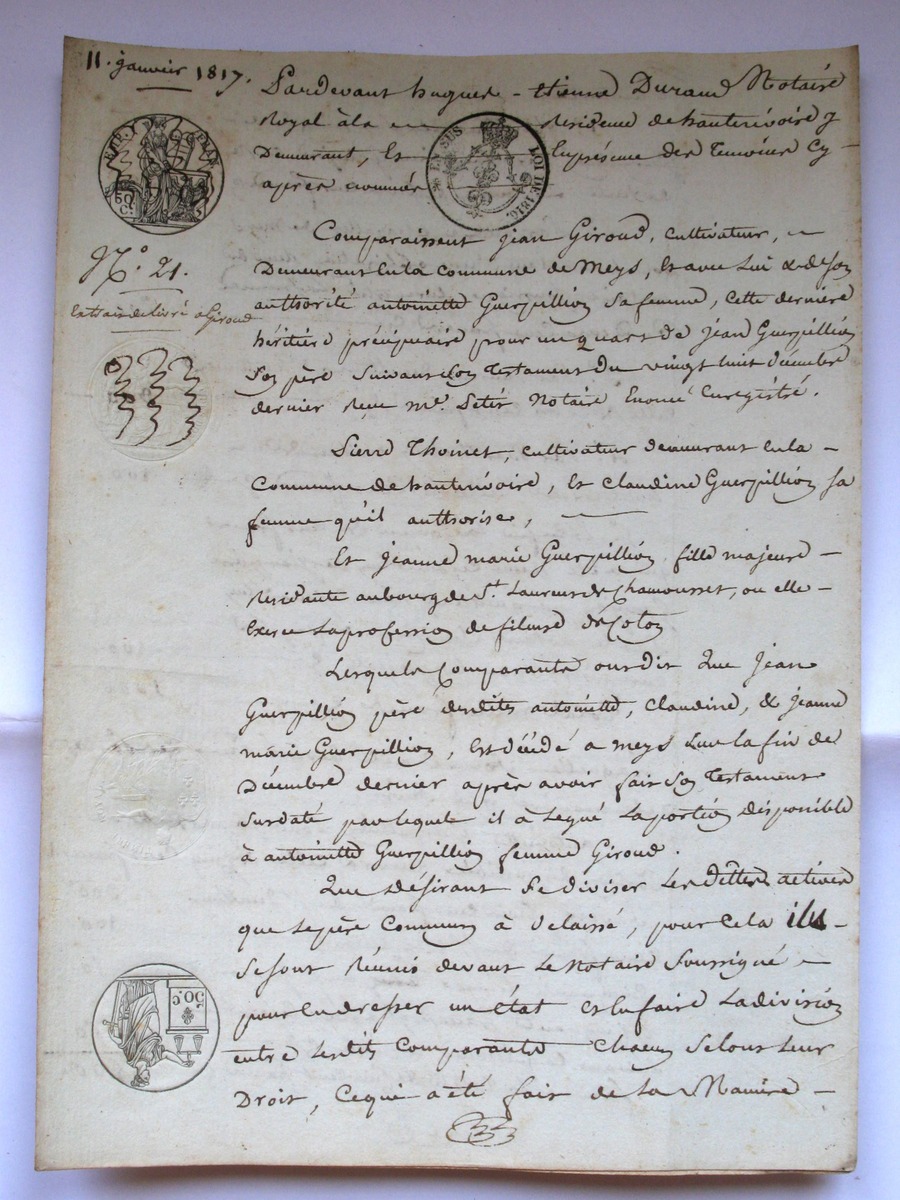 11. janvier 1817.
Pardevant hugues - etienne Durand Notaire
Royal à la Residence de hauterivoire y
Demeurant, Et En présence des Temoins Cy-
après nommés
EN SUS
LOI DE 1816.
50 C.
N.° 21.
Extrait delivré a Giroud
Comparaissent jean Giroud, cultivateur,
Demeurant En la commune de Meys, Et avec Lui & de son
authorité antoinette Guerpillion sa femme, Cette derniere
héritière préciputaire pour un quart de jean Guerpillion
son père suivant son Testament du vingt huit décembre
dernier recu Me. Notaire Enregistré.
Pierre Thoinet, cultivateur demeurant En la
Commune de hauterivoire, Et Claudine Guerpillion sa
femme qu'il authorise,
Et jeanne marie Guerpillion fille majeure
Residante au bourg de St. Laurent de Chamousset, ou elle
Exerce La profession de fileuse de Coton
Lesquels Comparants ont dit Que jean
Guerpillion père desdites antoinette, Claudine, & jeanne
marie Guerpillion, Est décédé a meys sur la fin de
Décembre dernier après avoir fait son Testament
Susdaté par lequel il à Legué La portion disponible
à antoinette Guerpillion femme Giroud.
Que désirant se diviser Les dettes actives
que Le père Commun à delaissé, pour Cela ils
se sont Réunis devant Le Notaire Soussigné
pour En dresser un état et En faire La division
entre Lesdits Comparants Chacun Selont Leur
Droit, Ce qui a été fait de La Maniere
50. C.